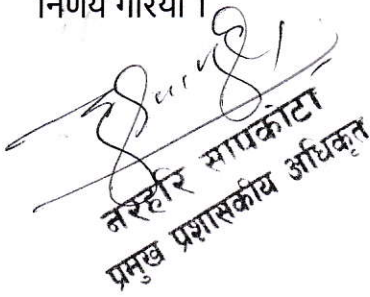 निर्णय गरियो ।
नरहरि सापकोटा
प्रमुख प्रशासकीय अधिकृत